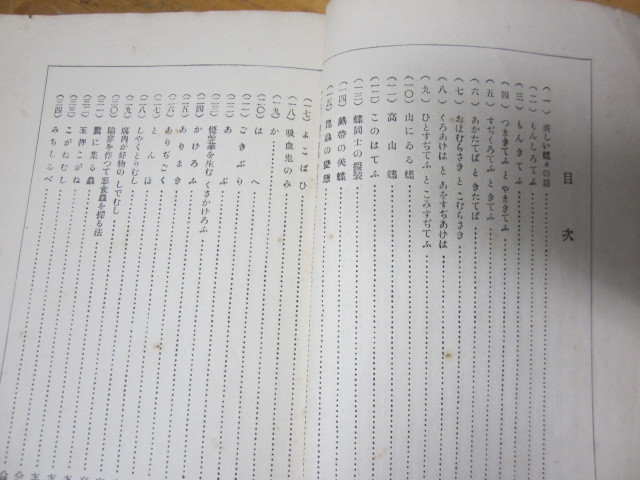 目次
(一) 美しい蝶々の話
(二) もんしろてふ
(三) もんきてふ
(四) つまきてふ と やまきてふ
(五) すぢぐろてふ と きてふ
(六) あかたてば と きたてば
(七) おほむらさき と こむらさき
(八) くろあけは と あをすぢあけは
(九) ひとすぢてふ と こみすぢてふ
(一〇) 山にゐる蝶
(一一) 高山蝶
(一二) このはてふ
(一三) 蝶同士の假裝
(一四) 熱帶の美蝶
(一五) 昆蟲の變態
(一七) よこばひ
(一八) 吸血鬼のみ
(一九) か
(二〇) はへ
(二一) ごきぶり
(二二) あぶ
(二三) 優曇華を生む くさかけろふ
(二四) かけろふ
(二五) ありまき
(二六) ありぢごく
(二七) とんぼ
(二八) しやくとりむし
(二九) 腐肉が好物の しでむし
(三〇) 陷穽を作つて惡食蟲を採る法
(三一) 糞に集る蟲
(三二) 玉押こがね
(三三) こがねむし
(三四) みちしるべ